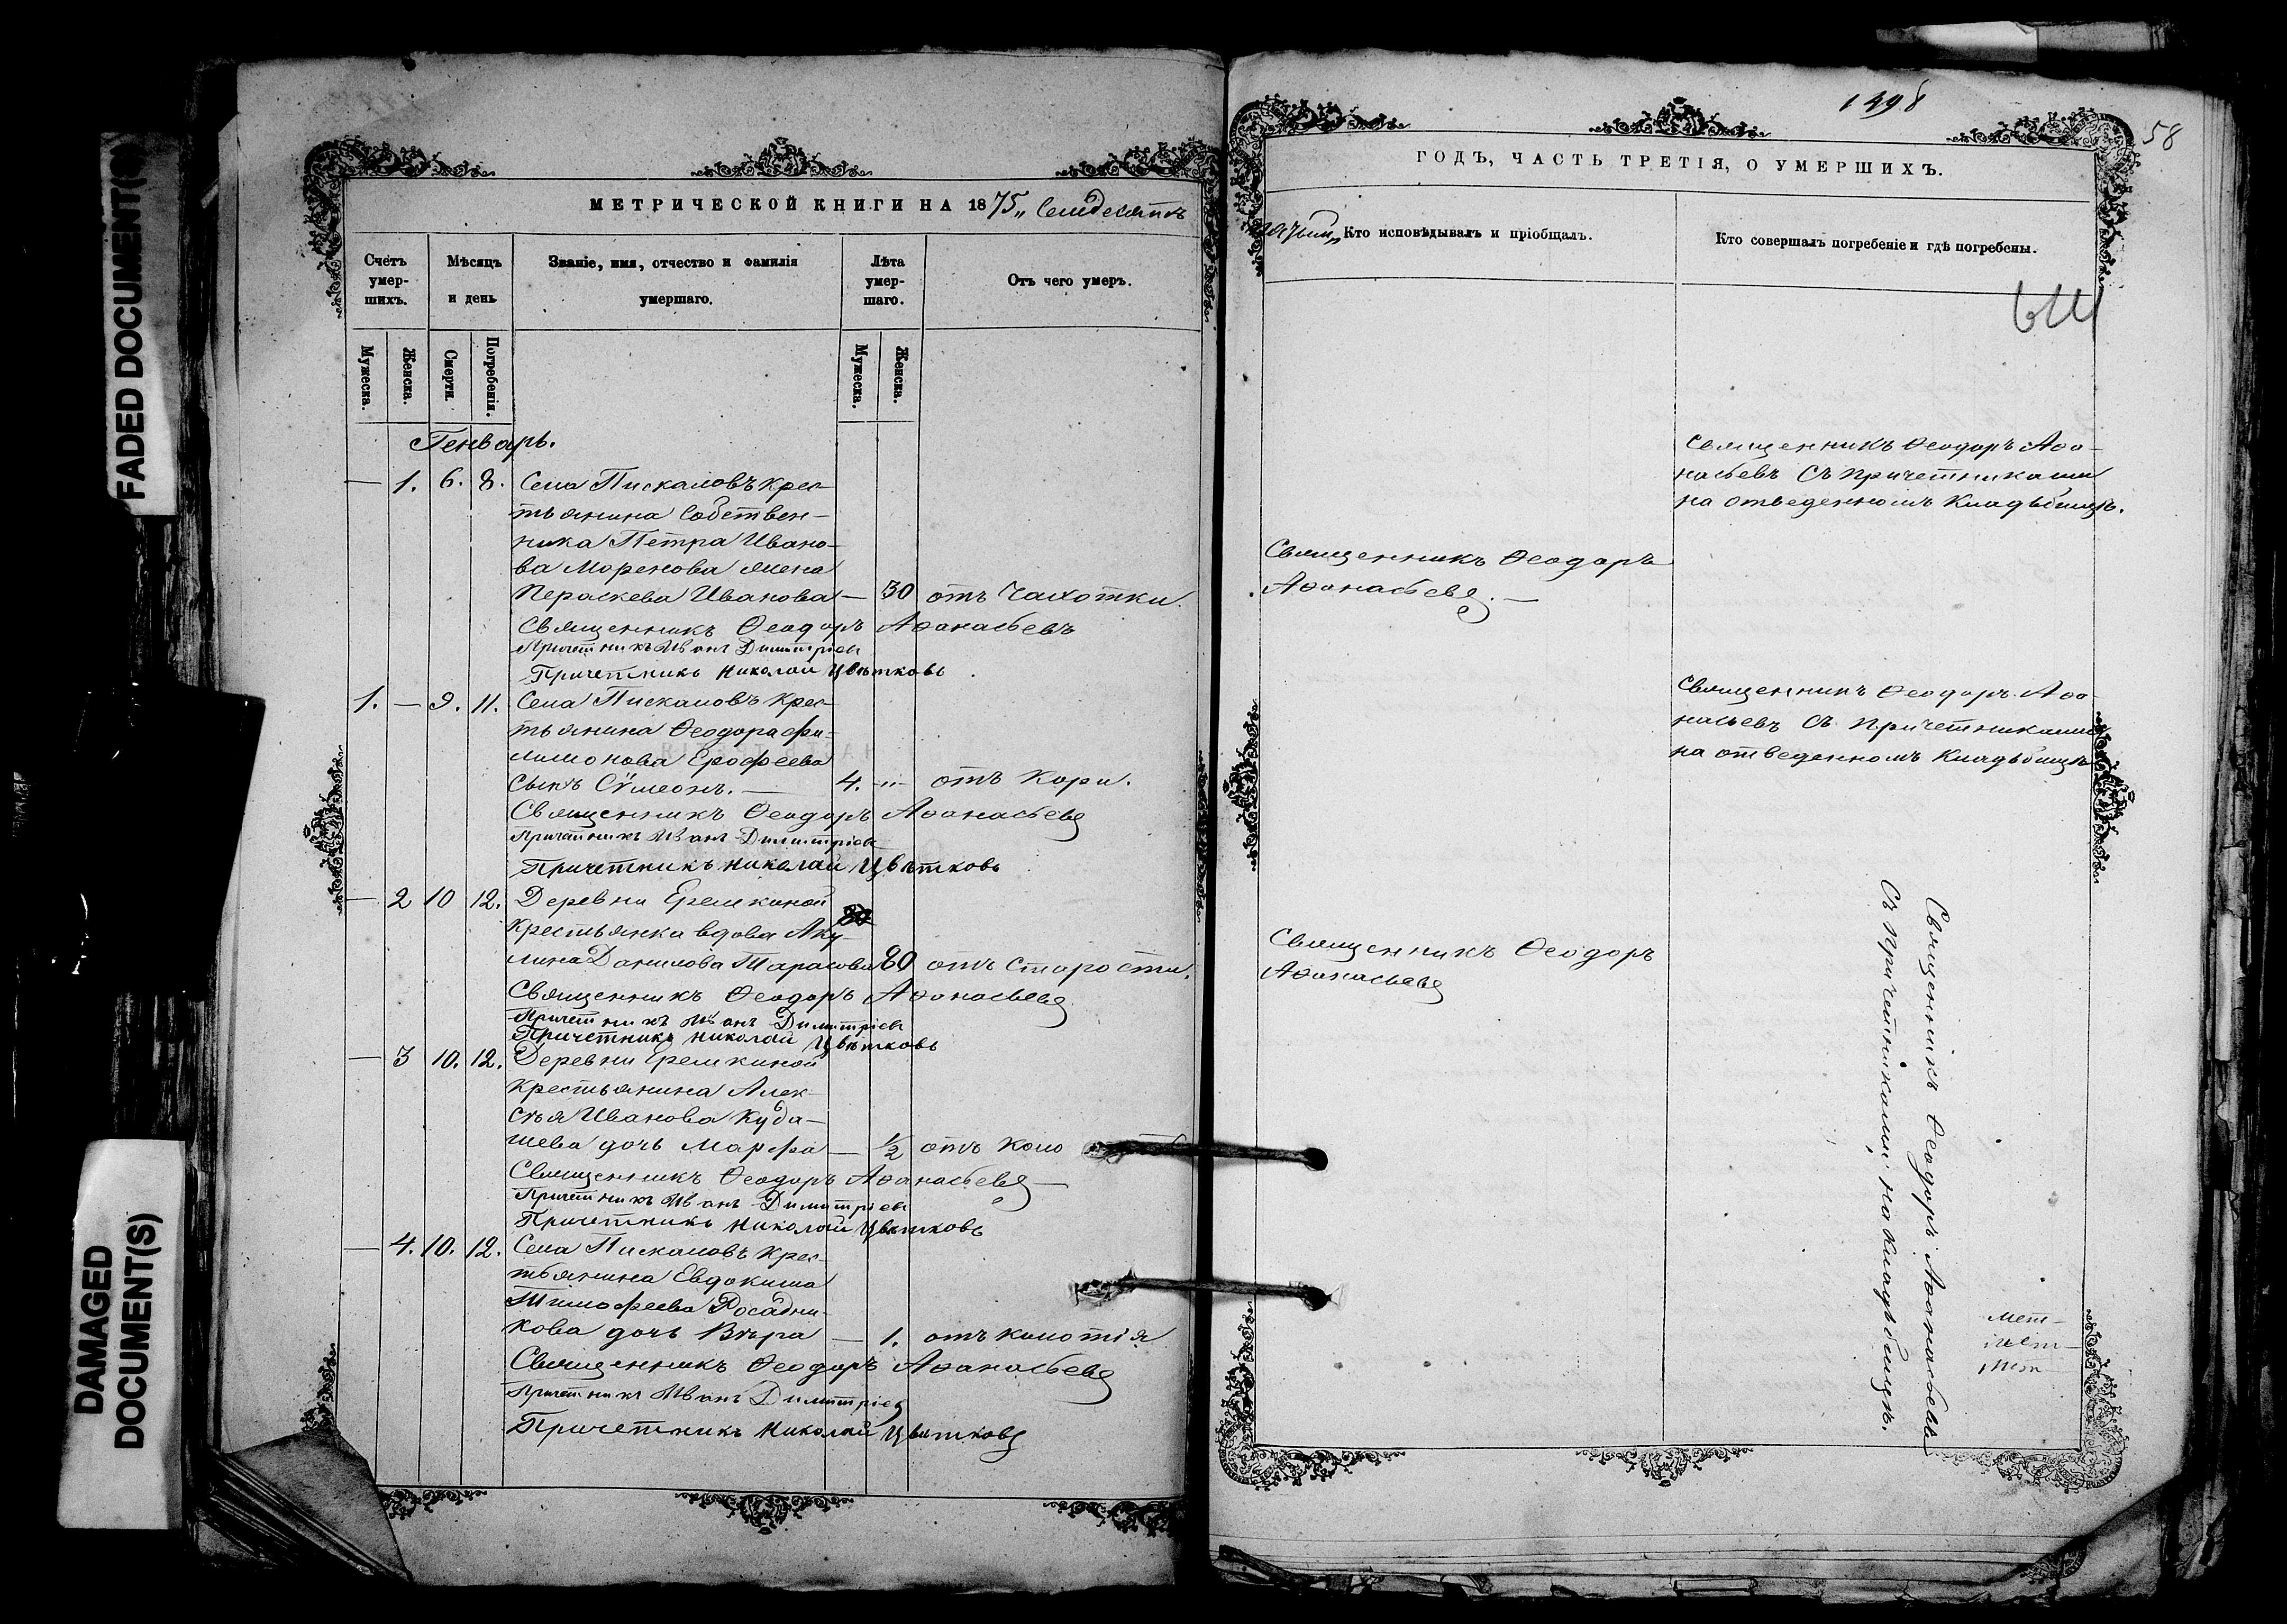 FADED DOCUMENT(S)
DAMAGED
DOCUMENT(S)
МЕТРИЧЕСКОЙ КНИГИ НА 1875 "Семдесятъ
Счетъ умер-шихъ.
Мѣсяцъ и день
Званіе, имя, отчество и фамилія умершаго.
Лѣта умер-шаго.
Отъ чего умеръ.
Мужеска.
Женска.
Смерти.
Погребенія.
Мужеска.
Женска.
Генварь.
— 1. 6. 8. Села Пискаловъ крес-
тьянина Собствен-
ника Петра Ивано-
ва Моренова жена
Пераскева Иванова — 30 отъ Чахотки.
Священникъ Ѳеодоръ Аѳонасьевъ
Причетникъ Иванъ Димитріевъ
Причетникъ Николай Цвѣтковъ
1. — 9. 11. Села Пискаловъ крес-
тьянина Ѳеодора Фи-
лимонова Ерофеева
сынъ Сѵмеонъ. — 4. — отъ Кори.
Священникъ Ѳеодоръ Аѳонасьевъ
Причетникъ Иванъ Димитріевъ
Причетникъ Николай Цвѣтковъ
— 2 10 12. Деревни Еремкиной
Крестьянка вдова Аку- 80
лина Данилова Тарасова 80 отъ Старости.
Священникъ Ѳеодоръ Аѳонасьевъ
Причетникъ Иванъ Димитріевъ
Причетникъ Николай Цвѣтковъ
— 3 10. 12. Деревни Еремкиной
Крестьянина Алек-
сѣя Иванова Куда-
шева дочь Марфа — 1/2 отъ Коло
Священникъ Ѳеодоръ Аѳонасьевъ
Причетникъ Иванъ Димитріевъ
Причетникъ Николай Цвѣтковъ
— 4. 10. 12. Села Пискаловъ крес-
тьянина Евдокима
Тимофеева Росадни-
кова дочь Вѣра — 1. отъ колотія
Священникъ Ѳеодоръ Аѳонасьевъ
Причетникъ Иванъ Димитріевъ
Причетникъ Николай Цвѣтковъ
1498
58
ГОДЪ, ЧАСТЬ ТРЕТІЯ, О УМЕРШИХЪ.
Кто исповѣдывалъ и пріобщалъ.
Кто совершалъ погребеніе и гдѣ погребены.
Священникъ Ѳеодоръ Аѳо-
насьевъ Съ Причетниками
на отведенномъ Кладбищѣ.
Священникъ Ѳеодоръ
Аѳонасьевъ. —
Священникъ Ѳеодоръ Аѳо-
насьевъ Съ Причетниками
на отведенномъ Кладбищѣ
Священникъ Ѳеодоръ
Аѳонасьевъ
Священникъ Ѳеодоръ Аѳонасьевъ
Съ Причетниками на кладбищѣ.